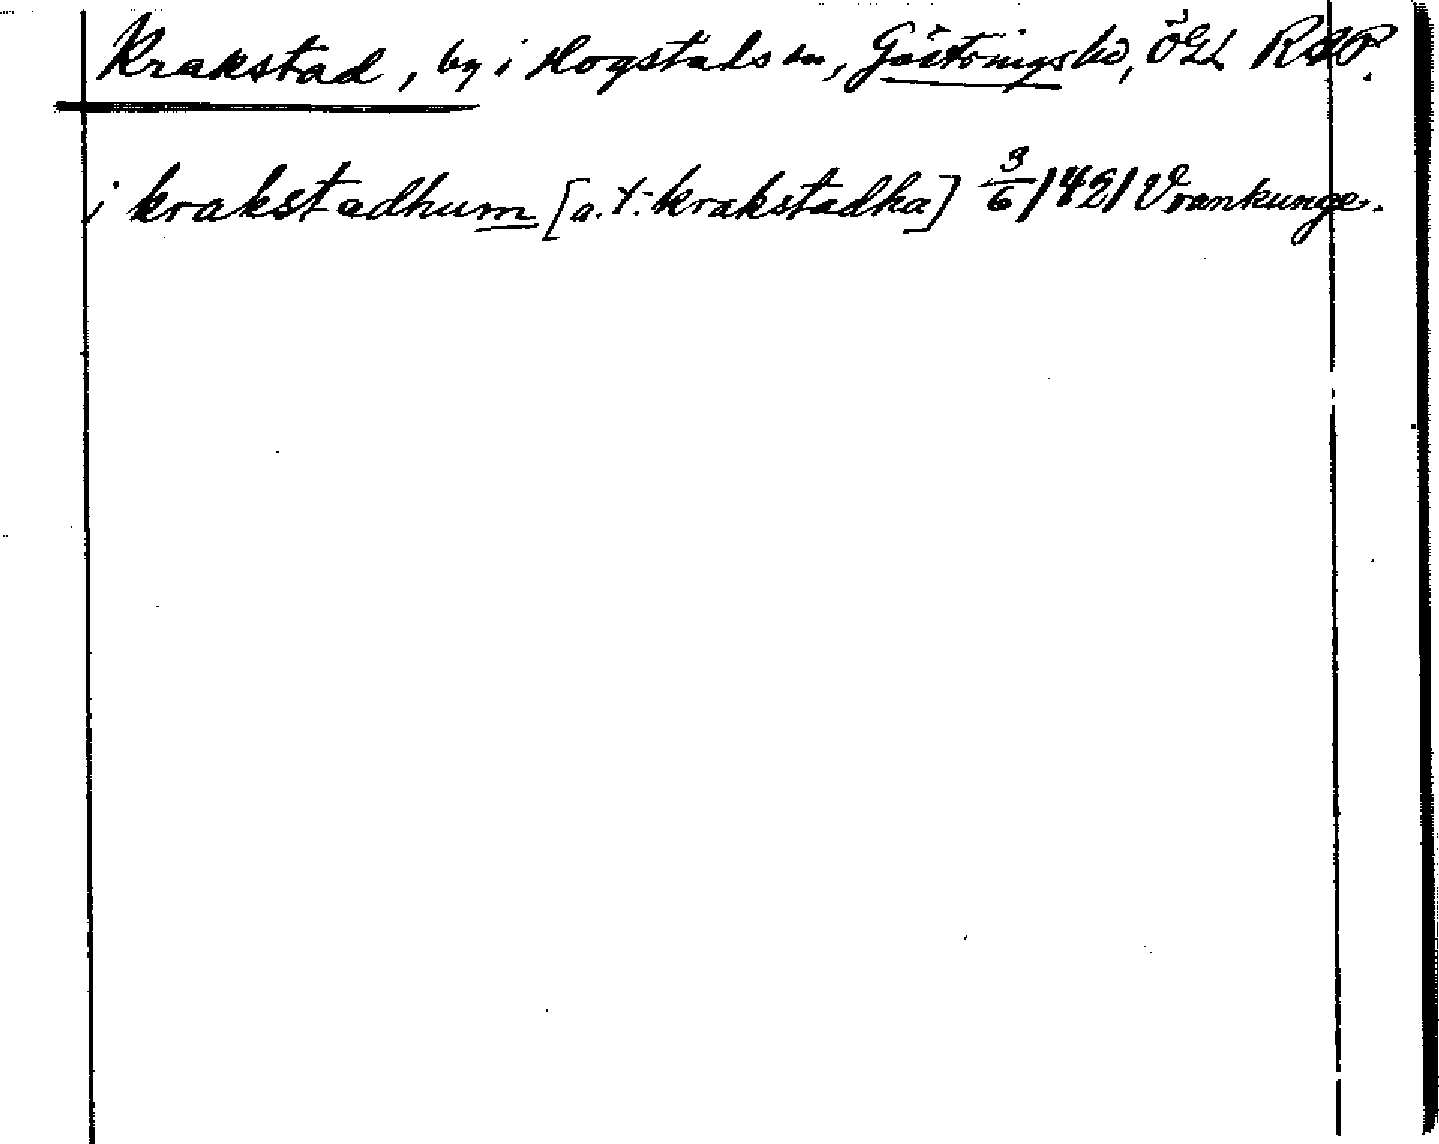 Krakstad, by i Hogstads sn, Göstrings hd, ÖGL RAP.
i krakstadhum [a. t.: krakstadha] 3/6 1421 Vrankunge.